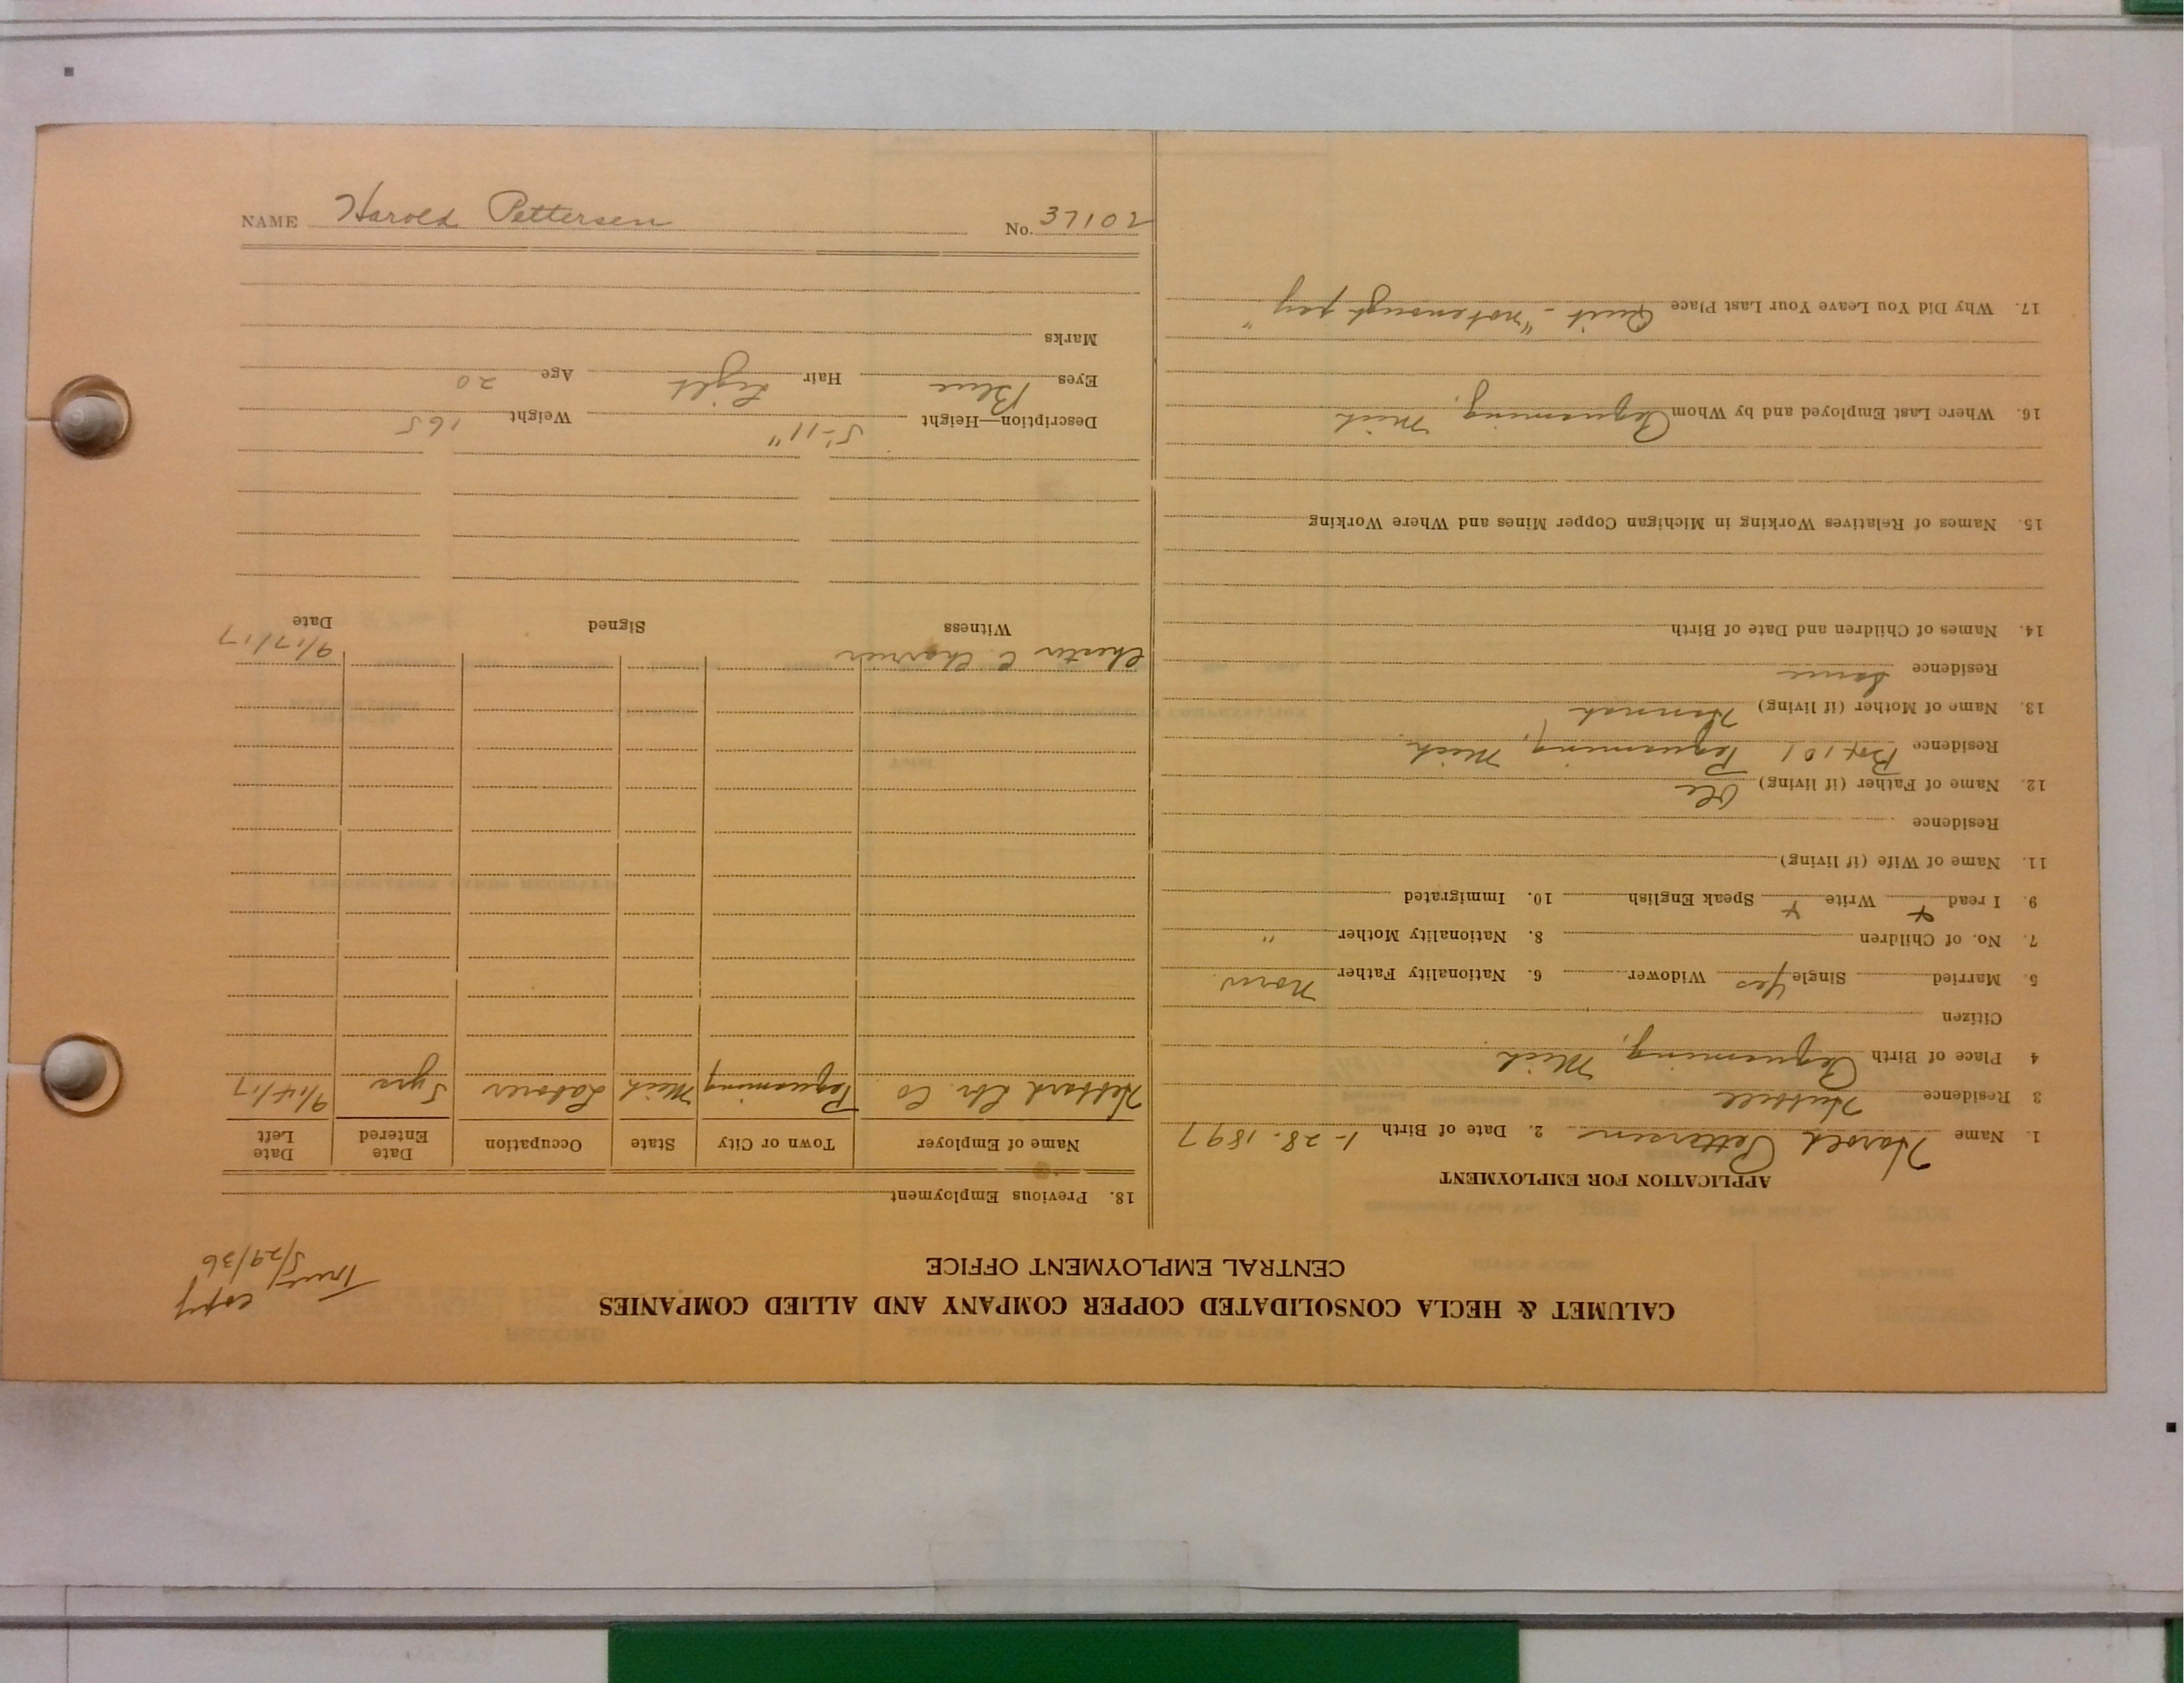 CALUMET & HECLA CONSOLIDATED COPPER COMPANY AND ALLIED COMPANIES
CENTRAL EMPLOYMENT OFFICE
True copy
5/29/36
APPLICATION FOR EMPLOYMENT
1. Name Harold Pettersen 2. Date of Birth 1-28-1897
3 Residence Hubbell
4 Place of Birth Pequaming, Mich
Citizen
5. Married Single Yes Widower 6. Nationality Father Norw.
7. No. of Children 8. Nationality Mother "
9. I read Write Speak English 10. Immigrated
11. Name of Wife (if living)
Residence
12. Name of Father (if living) Ole
Residence Box 101 Pequaming, Mich.
13. Name of Mother (if living) Hannah
Residence Same
14. Names of Children and Date of Birth
15. Names of Relatives Working in Michigan Copper Mines and Where Working
16. Where Last Employed and by Whom Pequaming, Mich
17. Why Did You Leave Your Last Place Quit - "not enough pay"
18. Previous Employment
Name of Employer Town or City State Occupation Date Entered Date Left
Hebbard Lbr. Co Pequaming Mich Laborer 5 yrs 9/14/17
Chester C. Charrier 9/17/17
Witness Signed Date
Description—Height 5'-11" Weight 165
Eyes Blue Hair Light Age 20
Marks
NAME Harold Pettersen No. 37102